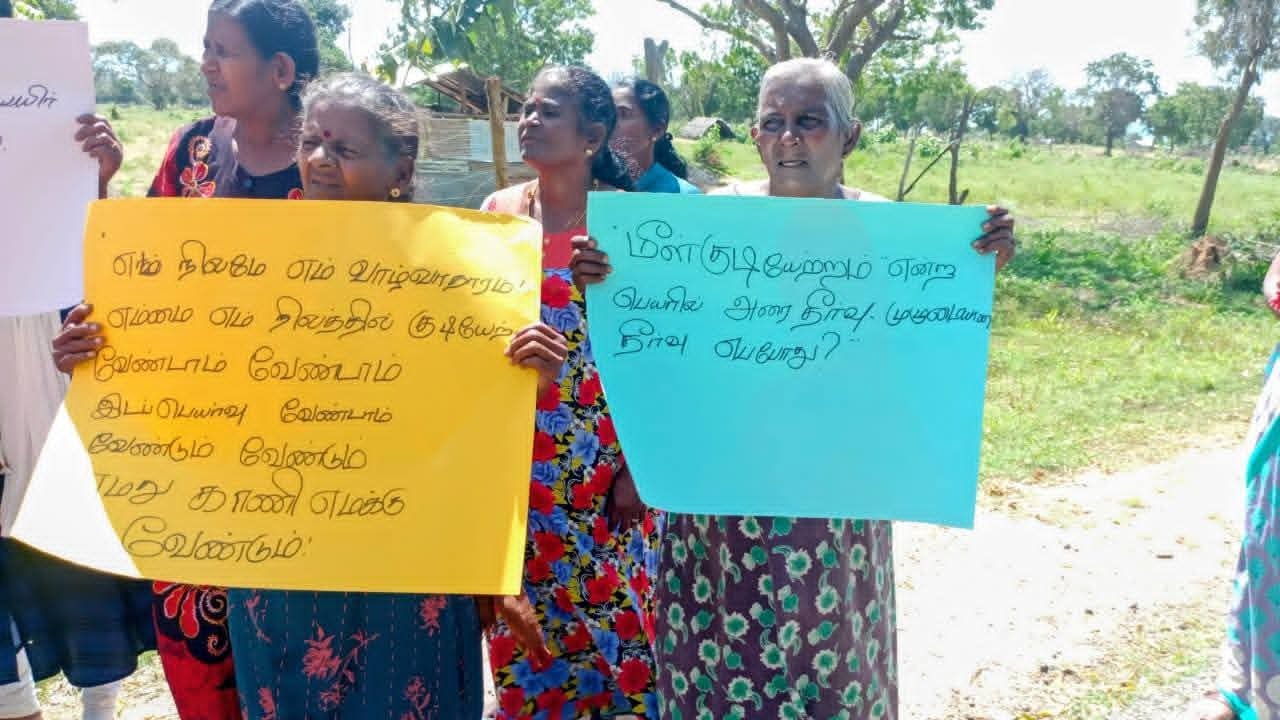 யயிர்
எம் நிலமே எம் வாழ்வாதாரம்!
எம்மை எம் நிலத்தில் குடியேற்
வேண்டாம் வேண்டாம்
இடப்பெயர்வு வேண்டாம்
வேண்டும் வேண்டும்
எமது காணி எமக்கு
வேண்டும்!
"மீள்குடியேற்றம்" என்ற
பெயரில் அரை தீர்வு. முழுமையான
தீர்வு எப்போது?"